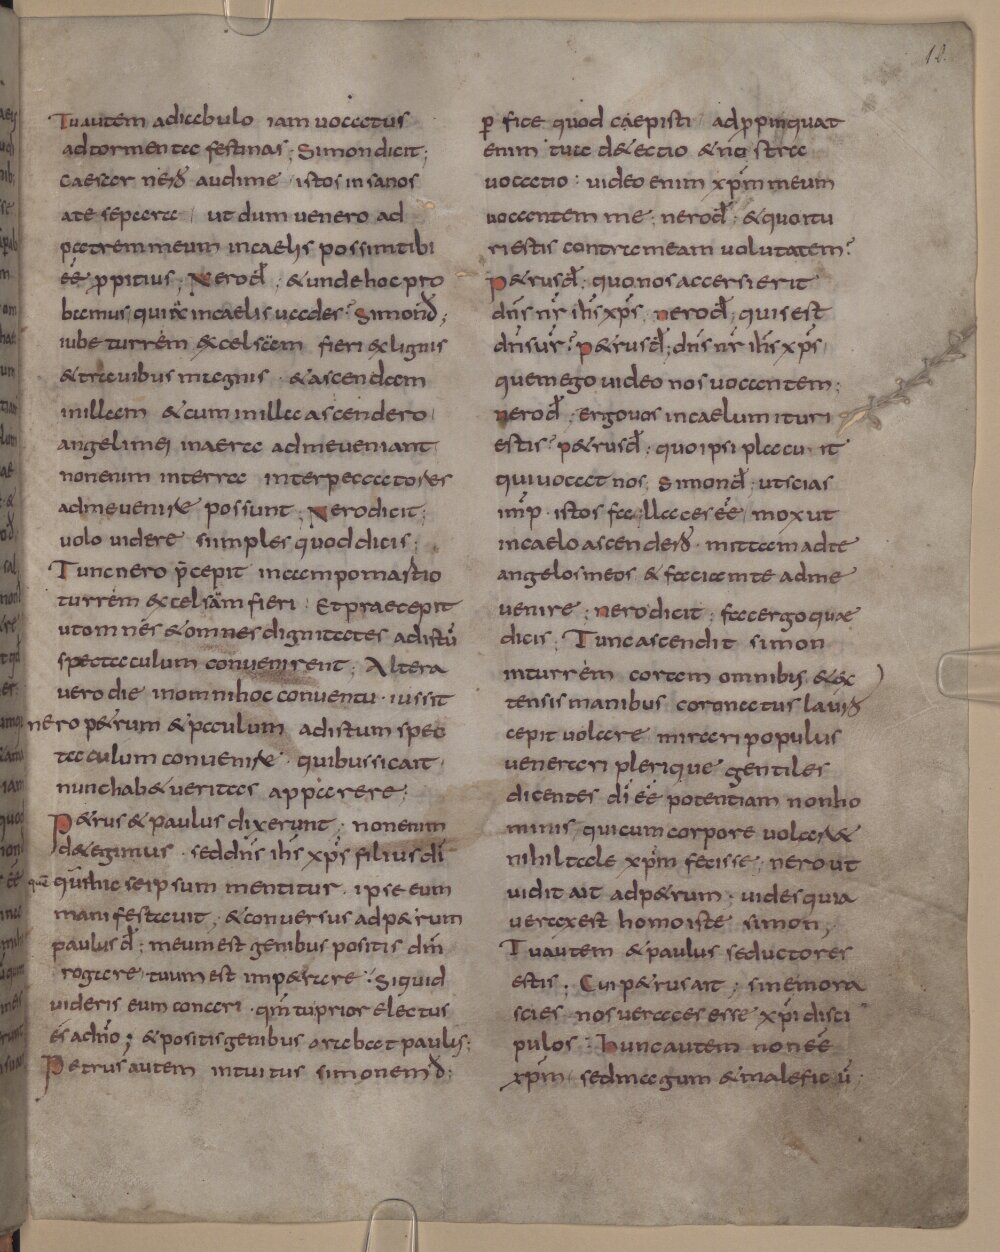 Tu autem adiabulo iam uocatus
ad tormenta festinas; Simon dicit;
caesar neró audi me istos insanos
a te separa ut dum uenero ad
patrem meum in caelis possim tibi
eē ꝓpitius; Nero đ; & unde hoc pro
bamus qui in caelis uades? Simon đ;
iube turrem excelsam fieri ex lignis
& trauibus magnis & ascendam
in illam & cum in illa ascendero
angeli mei in aera ad me ueniant
non enim in terra inter peccatores
ad me uenire possunt; Nero dicit;
uolo uidere si imples quod dicis;
Tunc nero p̄cepit in campo martio
turrem excelsam fieri Et praecepit
ut omnes & omnes dignitates ad istū
spectaculum conuenirent; Altera
uero die in omni hoc conuentu iussit
nero p&rum & paulum ad istum spec
taculum conuenire quibus sic ait
nunc hab& ueritas apparere;
P&rus & paulus dixerunt; non eum
d&egimus sed dn̄s ih̄s xp̄s filius dī
quē hic seipsum mentitur ipse eum
manifestauit; & conuersus ad p&rum
paulus đ; meum est genibus positis dm̄
rogare tuum est imp&rare Siquid
uideris eum conari qm̄ tu prior electus
es a dn̄o; & positis genibus orabat paulus;
Petrus autem intuitus simonem đ;
ꝑfice quod caepisti adꝓpinquat
enim tua d&ectio & nostra
uocatio uideo enim xp̄m meum
uocantem me; nero đ; & quo itu
ri estis contra meam volutatem?
P&rus đ; quo nos accersierit
dn̄s nr̄ ih̄s xp̄s; nero đ; quis est
dn̄s ur̄? p&rus đ; dn̄s nr̄ ih̄s xp̄s
quem ego uideo nos uocantem;
nero đ; ergo uos in caelum ituri
estis? p&rus đ; quo ipsi placuerit
qui uocat nos; Simon đ; ut scias
imp̄ istos fallaces eē mox ut
in caelo ascendero mittam ad te
angelos meos & faciam te ad me
uenire; nero dicit; fac ergo quae
dicis; Tunc ascendit simon
in turrem coram omnibus & ex
tensis manibus coronatus lauro
cepit uolare mirari populus
uenerari plerique gentiles
dicentes dī eē potentiam non ho
minis, qui cum corpore uolar&
nihil tale xp̄m fecisse; nero ut
uidit ait ad p&rum uides quia
uerax est homo iste simon;
Tu autem & paulus seductores
estis; Cui p&rus ait; sine mora
scies nos ueraces esse xp̄i disci
pulos; hunc autem non eē
xp̄m sed magum & maleficū